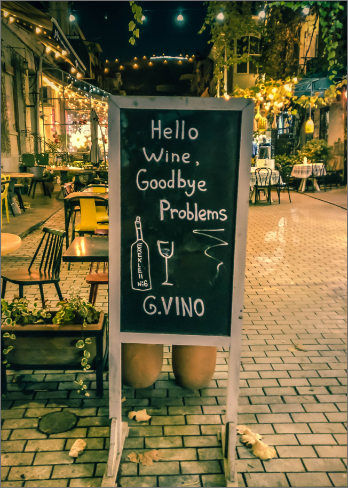 Hello
Wine,
Goodbye
Problems
G.VINO